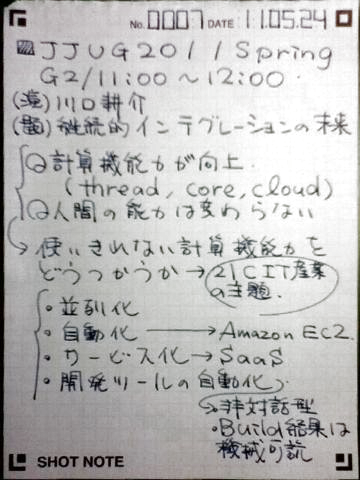 No. 0007 DATE 11.05.24
JJUG2011 Spring
G2/11:00～12:00
(演)川口耕介
(題)継続的インテグレーションの未来
○計算機能力が向上.
(thread, core, cloud)
○人間の能力は変わらない
使いきれない計算機能力を
どうつかうか→21C IT産業
の主題.
・並列化
・自動化→Amazon EC2.
・サービス化→SaaS
・開発ツールの自動化
→非対話型
・Build結果は
機械可読
SHOT NOTE